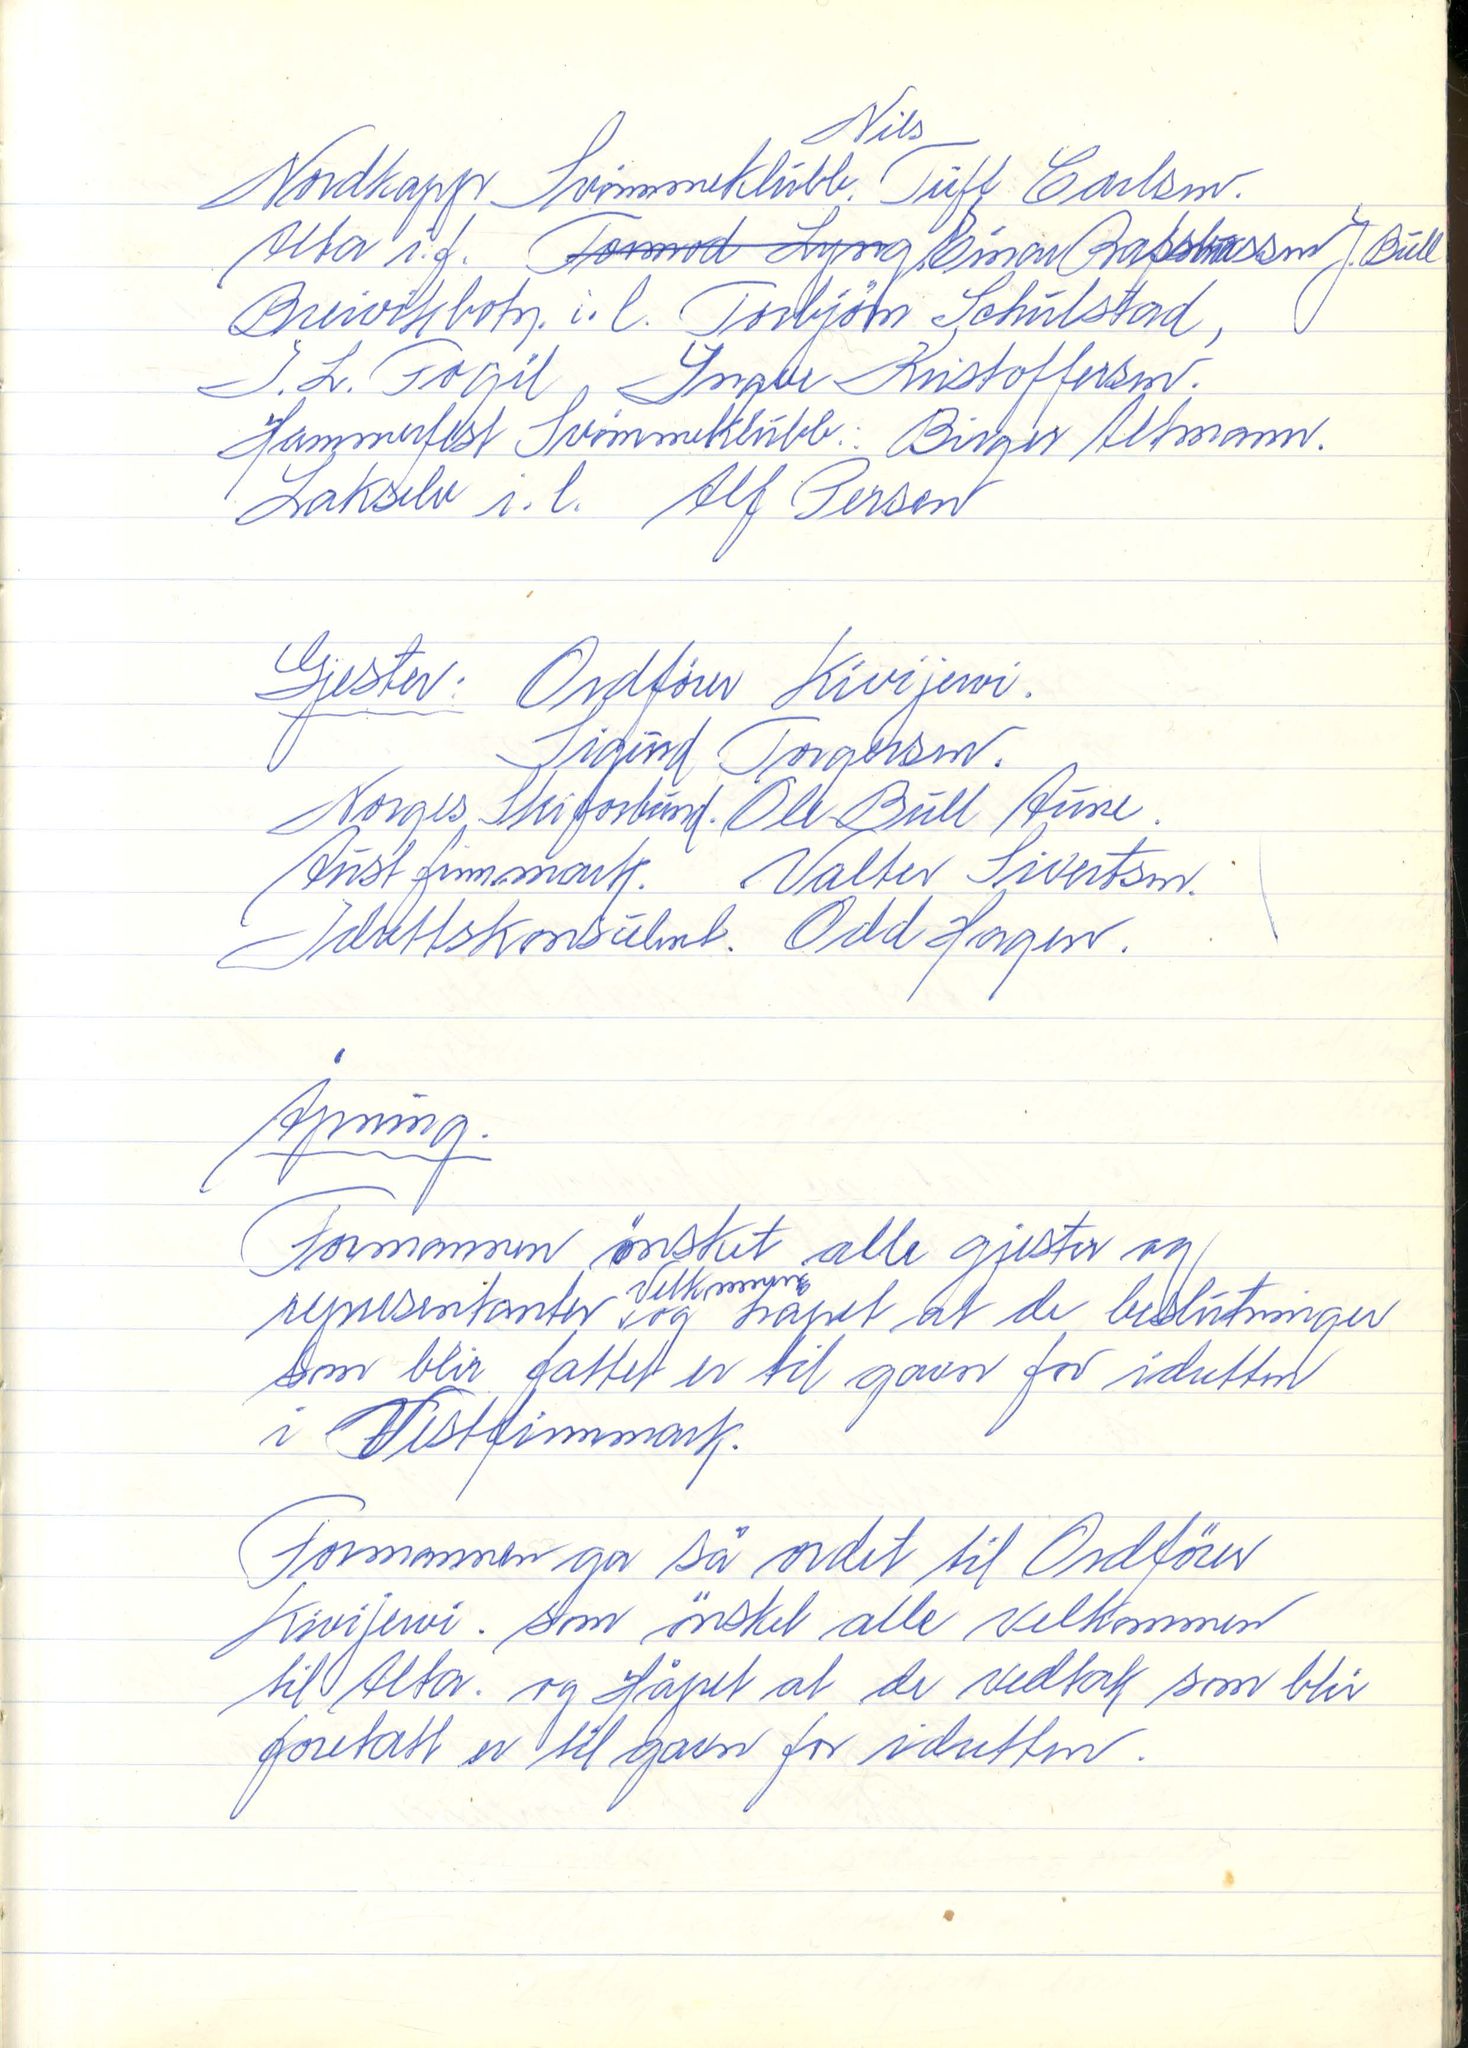 Nils
Nordkapp Svømmeklubb. Tuft Carlsen.
Alta i.f. Tormod Lyng, Einar J. Bull
Breivikbotn. i. l. Torbjörn Schulstad,
I. L. Fogil Yngve Kristoffersen.
Hammerfest Svømmeklubb: Birger Altmann.
Lakselv i.l. Alf Persen
Gjester: Ordförer Kivijervi.
Sigurd Torgersen.
Norges Skiforbund. Ole Bull Aune.
Aust finnmark. Valter Sivertsen.
Idrettskonsulent. Odd Hagen.
Åpning.
Formannen önsket alle gjester og
velkommen
representanter og håpet at de beslutninger
som blir fattet er til gavn for idretten
i Vestfinnmark.
Formannen ga så ordet til Ordförer
Kivijervi. som önsket alle velkommen
til Alta. og Håpet at de vedtak som blir
foretatt er til gavn for idretten.